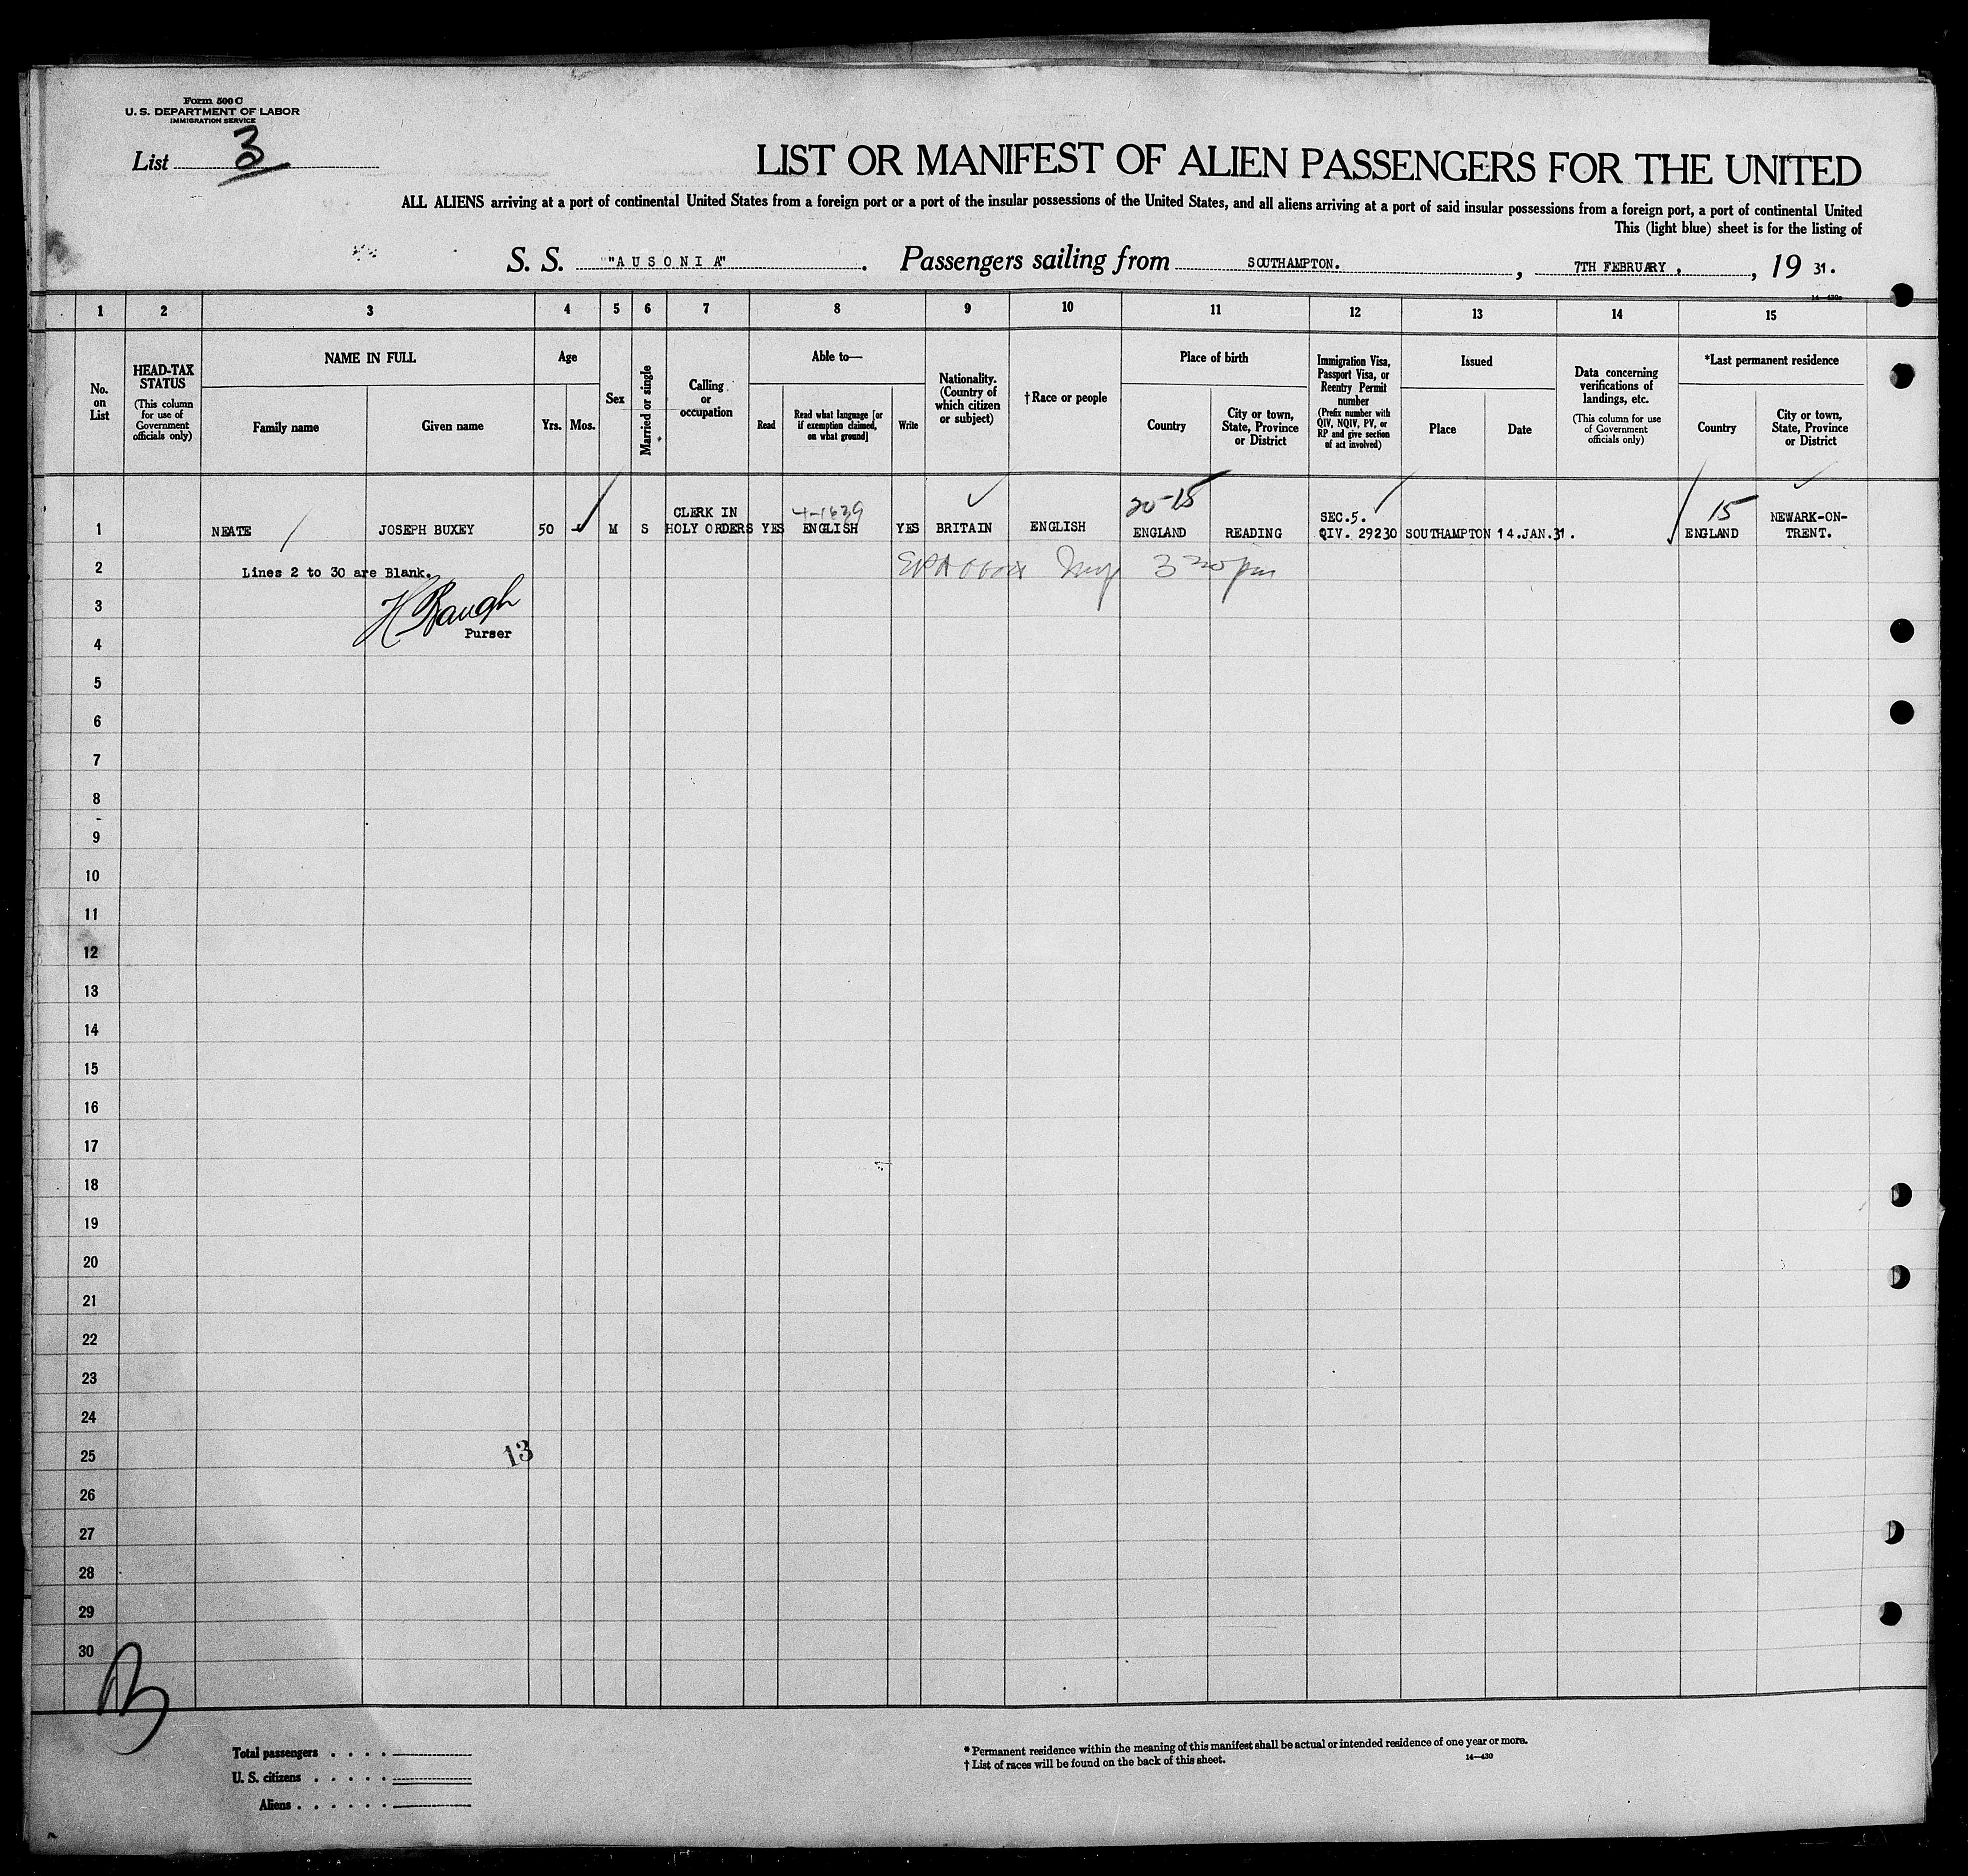 Form 500 C
U. S. DEPARTMENT OF LABOR
IMMIGRATION SERVICE
List 3
LIST OR MANIFEST OF ALIEN PASSENGERS FOR THE UNITED
ALL ALIENS arriving at a port of continental United States from a foreign port or a port of the insular possessions of the United States, and all aliens arriving at a port of said insular possessions from a foreign port, a port of continental United
This (light blue) sheet is for the listing of
S. S. "AUSONIA". Passengers sailing from SOUTHAMPTON. , 7TH FEBRUARY , , 19 31.
14—430a
1 2 3 4 5 6 7 8 9 10 11 12 13 14 15
No. on List
HEAD-TAX STATUS
(This column for use of Government officials only)
NAME IN FULL
Family name
Given name
Age
Yrs.
Mos.
Sex
Married or single
Calling or occupation
Able to—
Read
Read what language [or if exemption claimed, on what ground]
Write
Nationality. (Country of which citizen or subject)
† Race or people
Place of birth
Country
City or town, State, Province or District
Immigration Visa, Passport Visa, or Reentry Permit number
(Prefix number with QIV, NQIV, PV, or RP and give section of act involved)
Issued
Place
Date
Data concerning verifications of landings, etc.
(This column for use of Government officials only)
*Last permanent residence
Country
City or town, State, Province or District
4-1639
20-15
15
1 NEATE JOSEPH BUXEY 50 M S CLERK IN HOLY ORDERS YES ENGLISH YES BRITAIN ENGLISH ENGLAND READING SEC.5. QIV. 29230 SOUTHAMPTON 14.JAN.31. ENGLAND NEWARK-ON-TRENT.
2 Lines 2 to 30 are Blank. 3 20 pm
3 H Baugh
Purser
4
5
6
7
8
9
10
11
12
13
14
15
16
17
18
19
20
21
22
23
24
25
13
26
27
28
29
30
Total passengers . . . .
U. S. citizens . . . . .
Aliens . . . . . .
* Permanent residence within the meaning of this manifest shall be actual or intended residence of one year or more.
† List of races will be found on the back of this sheet.
14—430